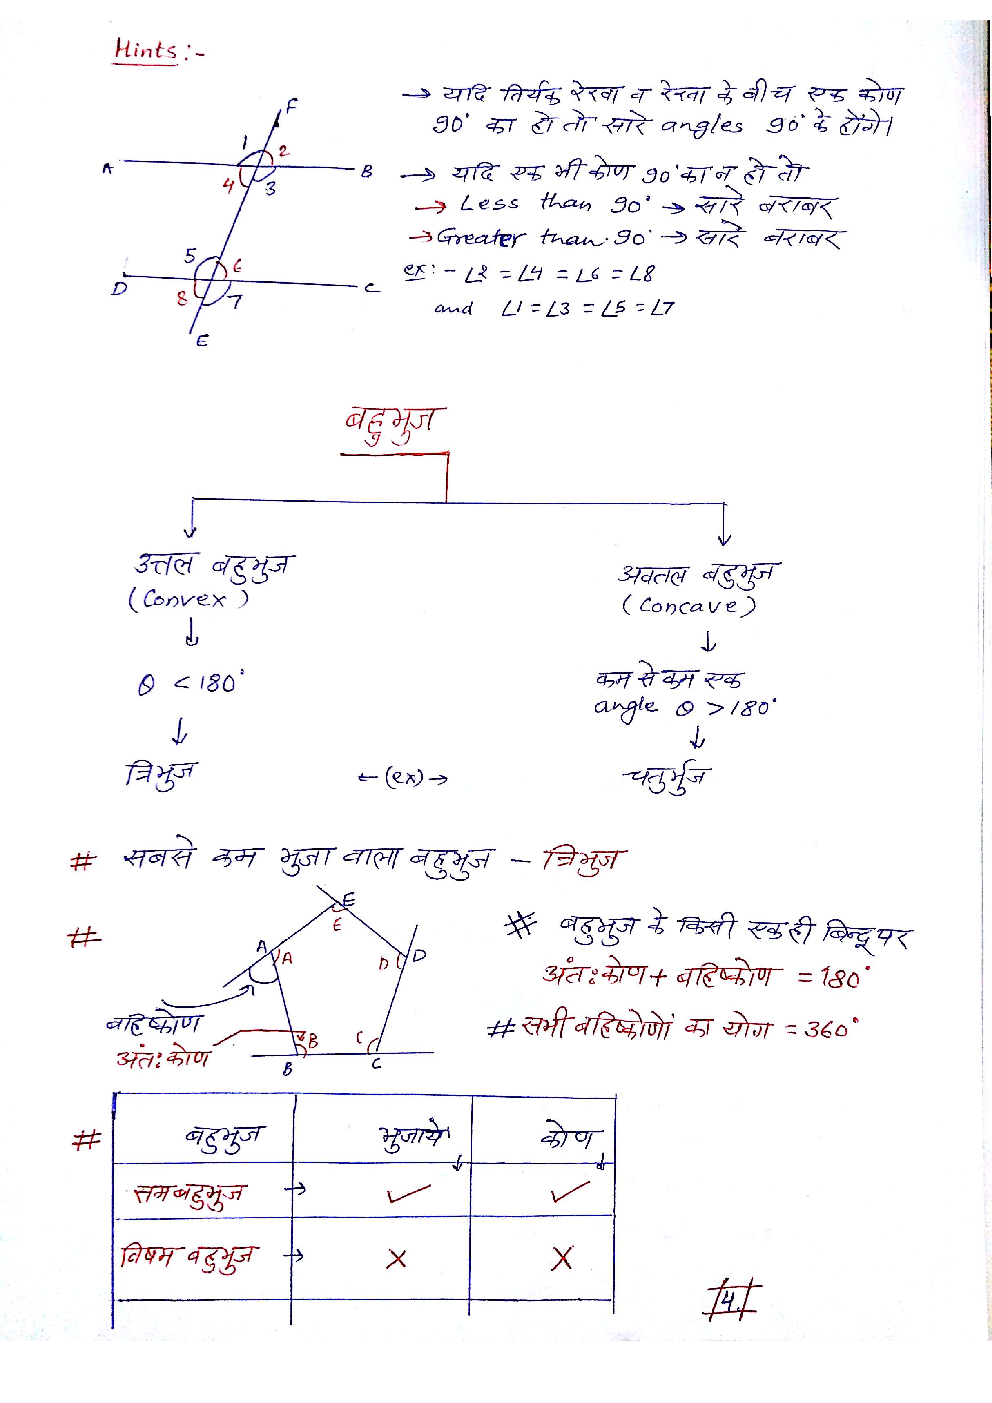 Hints :-
F
1
2
A
B
4
3
5
6
D
C
8
7
E
→ यदि तिर्यक रेखा व रेखा के बीच एक कोण
90° का हो तो सारे angles 90° के होंगे।
→ यदि एक भी कोण 90° का न हो तो
→ Less than 90° → सारे बराबर
→ Greater than 90° → सारे बराबर
ex:- ∠2 = ∠4 = ∠6 = ∠8
and ∠1 = ∠3 = ∠5 = ∠7
बहुभुज
उत्तल बहुभुज
(Convex)
↓
θ < 180°
↓
त्रिभुज
अवतल बहुभुज
(Concave)
↓
कम से कम एक
angle θ > 180°
↓
चतुर्भुज
← (ex) →
# सबसे कम भुजा वाला बहुभुज - त्रिभुज
#
E
E
A
A
D
D
बहिष्कोण
अंतः कोण
B
C
B
C
# बहुभुज के किसी एक ही बिन्दू पर
अंतः कोण + बहिष्कोण = 180°
# सभी बहिष्कोणों का योग = 360°
# बहुभुज भुजायें कोण
समबहुभुज → ✓ ✓
विषम बहुभुज → X X
4